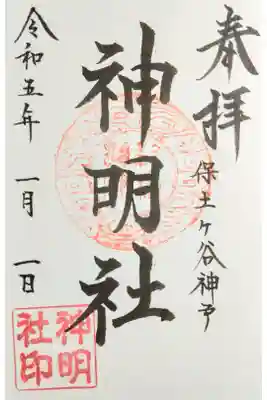 奉拝
保土ヶ谷神戸
神明社
令和五年 一月 一日
神明
社印